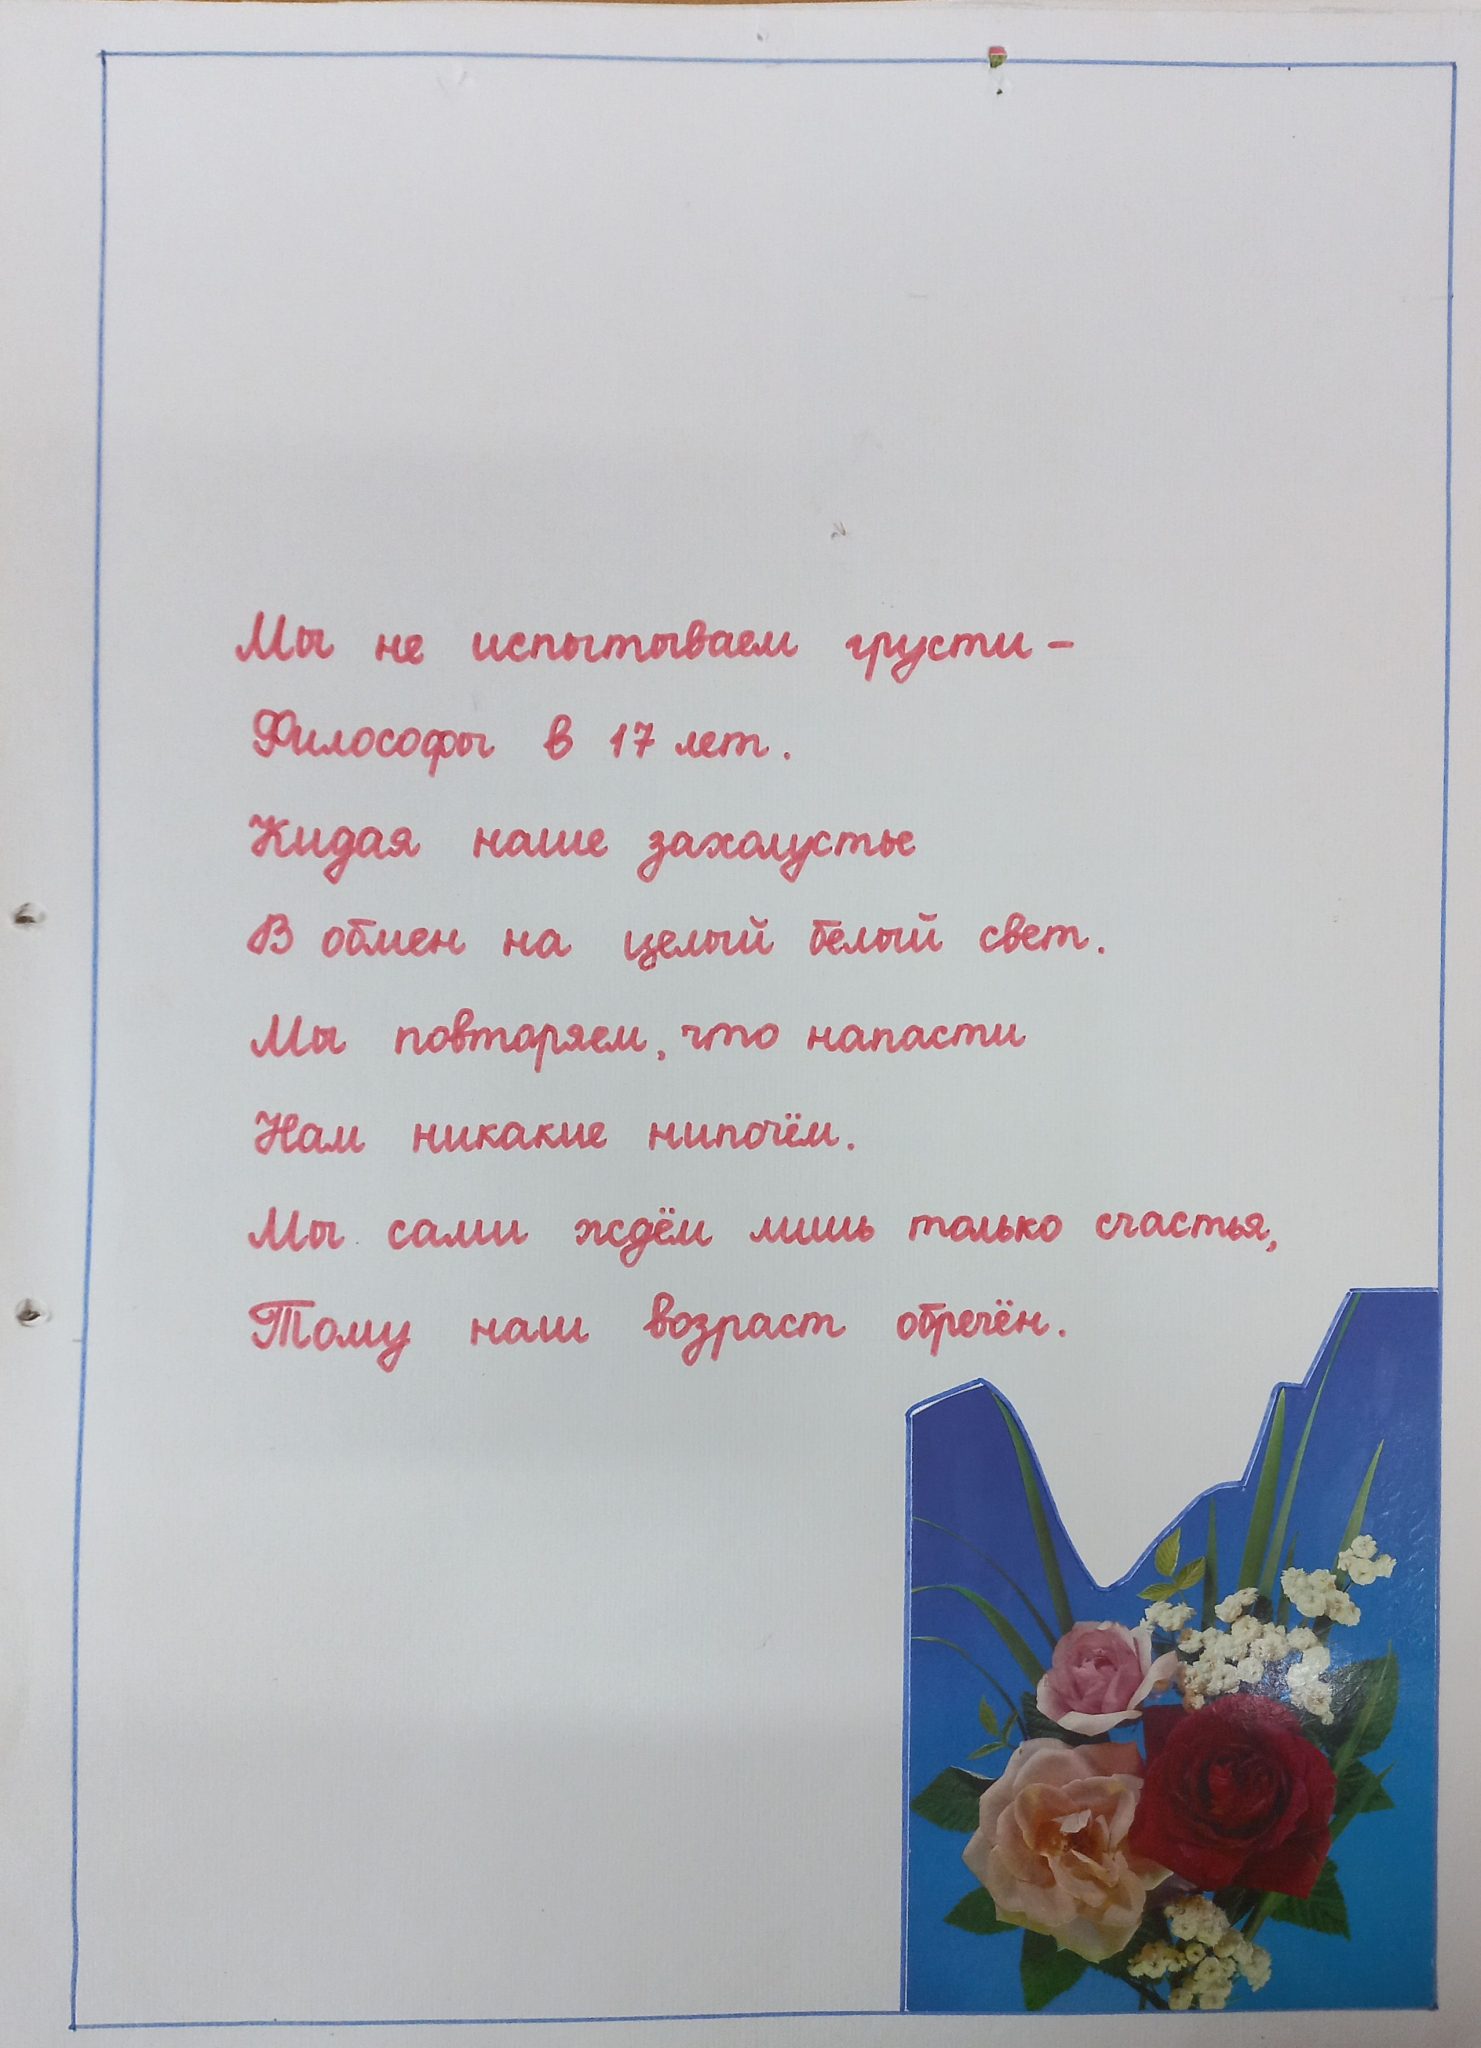 Мы не испытываем грусти –
Философы в 17 лет.
Кидая наше захолустье
В обмен на целый белый свет.
Мы повторяем, что напасти
Нам никакие нипочём.
Мы сами ждём лишь только счастья,
Тому наш возраст обречён.